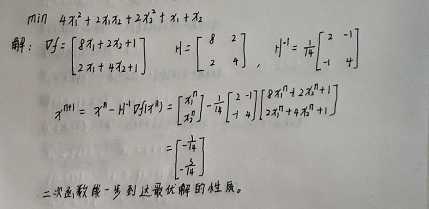 min 4x₁² + 2x₁x₂ + 2x₂² + x₁ + x₂
解: ∇f = [8x₁+2x₂+1; 2x₁+4x₂+1] H = [8 2; 2 4], H⁻¹ = 1/14 [2 -1; -1 4]
xⁿ⁺¹ = xⁿ - H⁻¹∇f(xⁿ) = [x₁ⁿ; x₂ⁿ] - 1/14 [2 -1; -1 4] [8x₁ⁿ+2x₂ⁿ+1; 2x₁ⁿ+4x₂ⁿ+1]
= [-1/14; -3/14]
二次函数 一步到达最优解的性质。